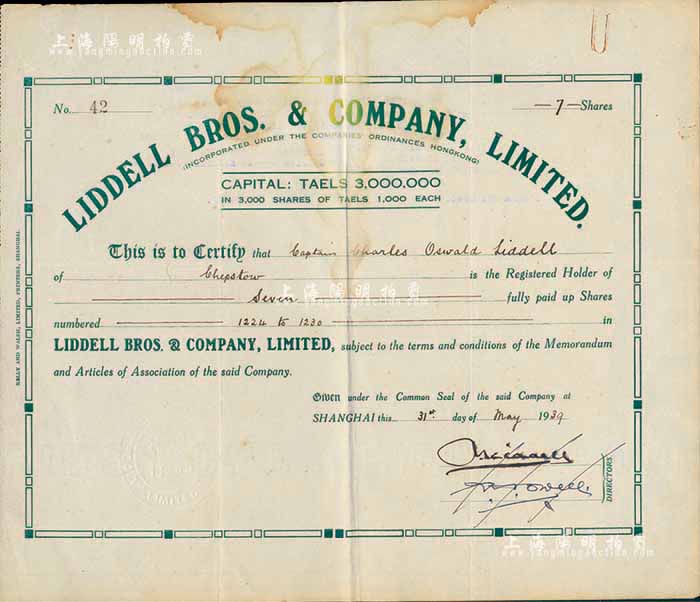 上海陽明拍賣
www.yangmingauction.com
No. 42
—7— Shares
LIDDELL BROS. & COMPANY, LIMITED.
(INCORPORATED UNDER THE COMPANIES' ORDINANCES HONGKONG)
CAPITAL: TAELS 3,000,000
IN 3,000 SHARES OF TAELS 1,000 EACH
This is to Certify that Captain Charles Oswald Liddell
of Chepstow is the Registered Holder of
Seven fully paid up Shares
上海陽明拍賣
www.yangmingauction.com
numbered 1224 to 1230 in
LIDDELL BROS. & COMPANY, LIMITED, subject to the terms and conditions of the Memorandum
and Articles of Association of the said Company.
Given under the Common Seal of the said Company at
SHANGHAI this 31st day of May 1939
DIRECTORS
KELLY AND WALSH, LIMITED, PRINTERS, SHANGHAI.
LIMITED
上海陽明拍賣
www.yangmingauction.com